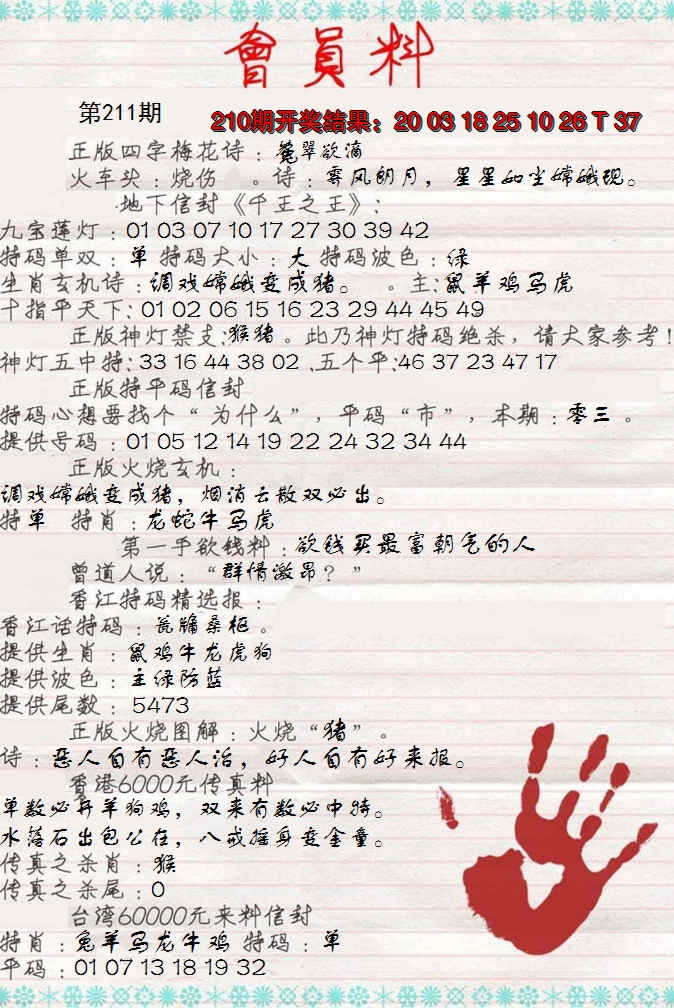 會員料
第211期
210期开奖结果：20 03 18 25 10 26 T 37
正版四字梅花诗：菀翠欲滴
火车头：烧伤 。诗：霁风朗月，星星如尘嫦娥现。
地下信封《千王之王》：
九宝莲灯：01 03 07 10 17 27 30 39 42
特码单双：单 特码大小：大 特码波色：绿
生肖玄机诗：调戏嫦娥变成猪。 。主：鼠羊鸡马虎
十指平天下：01 02 06 15 16 23 29 44 45 49
正版神灯禁支：猴猪。此乃神灯特码绝杀，请大家参考！
神灯五中特：33 16 44 38 02 .五个平：46 37 23 47 17
正版特平码信封
特码心想要找个“为什么”，平码“市”，本期：零三 。
提供号码：01 05 12 14 19 22 24 32 34 44
正版火烧玄机：
调戏嫦娥变成猪，烟消云散双必出。
特单 特肖：龙蛇牛马虎
第一手欲钱料：欲钱买最富朝气的人
曾道人说：“群情激昂？”
香江特码精选报：
香江话特码：瓮牖桑枢 。
提供生肖：鼠鸡牛龙虎狗
提供波色：主绿防蓝
提供尾数：5473
正版火烧图解：火烧“猪”。
诗：恶人自有恶人治，好人自有好来报。
香港6000元传真料
单数必开羊狗鸡，双来有数必中特。
水落石出包公在，八戒摇身变金童。
传真之杀肖：猴
传真之杀尾：0
台湾60000元来料信封
特肖：兔羊马龙牛鸡 特码：单
平码：01 07 13 18 19 32